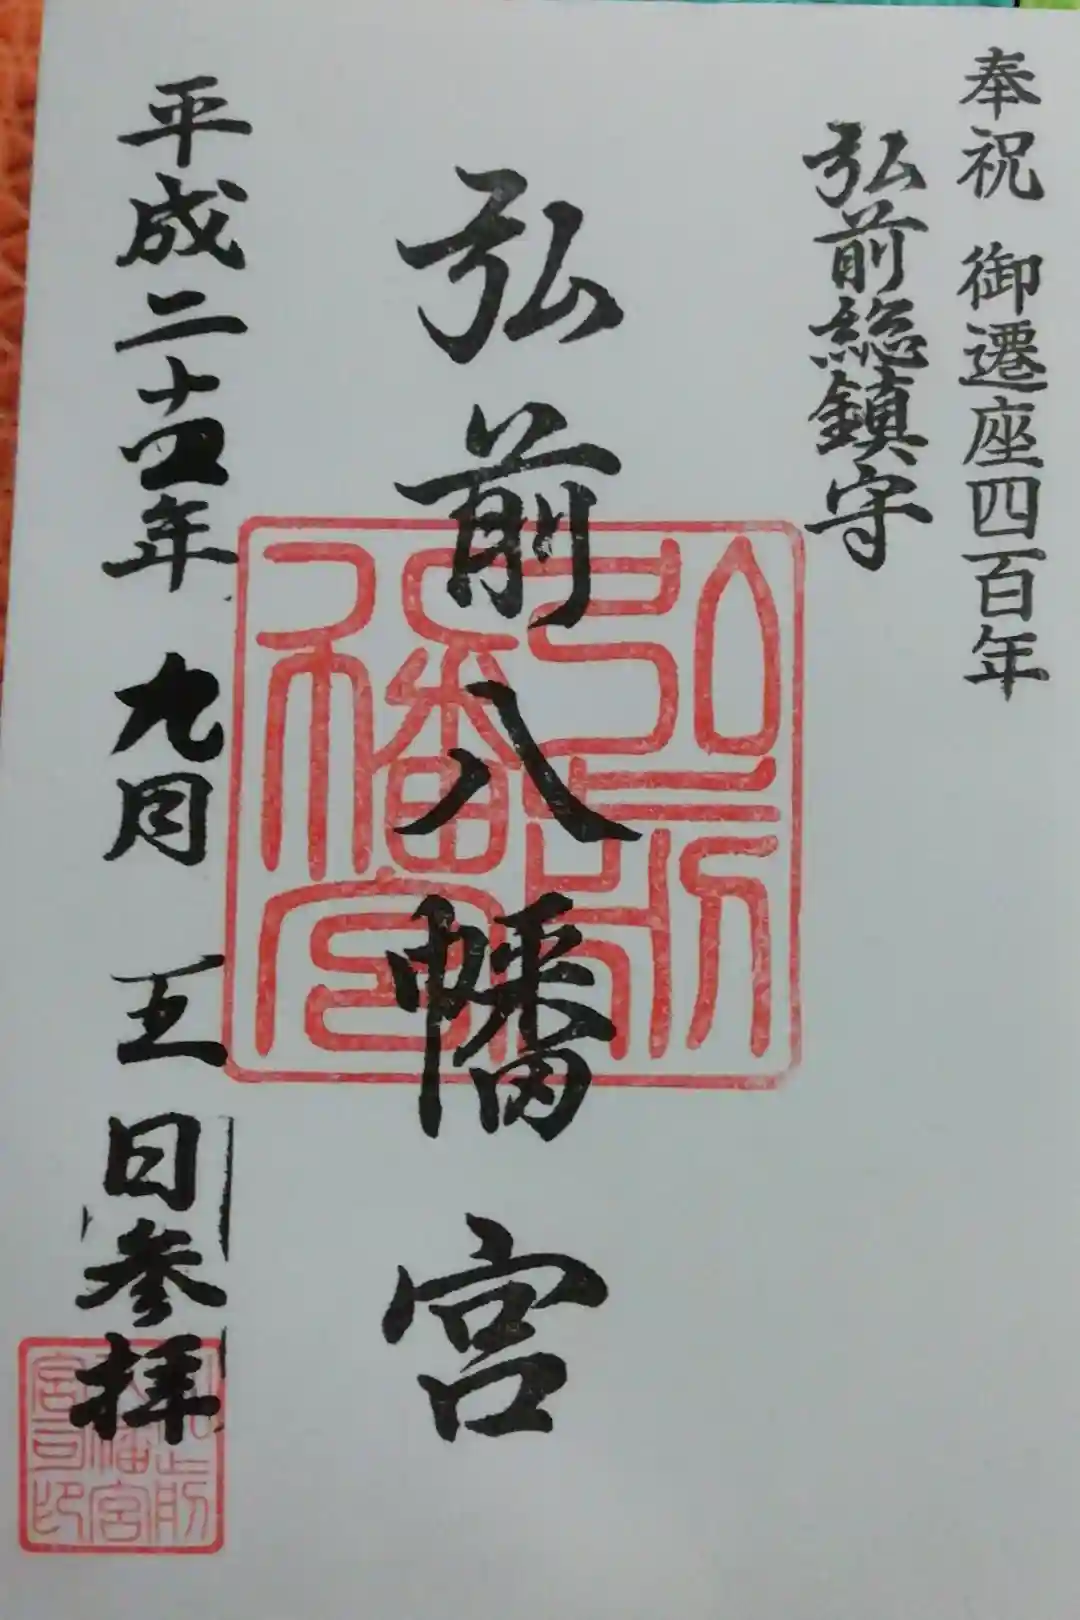 奉祝 御遷座四百年
弘前総鎮守
弘前八幡宮
平成二十四年 九月 五日参拝
弘前八幡宮
弘前八幡宮宮司印